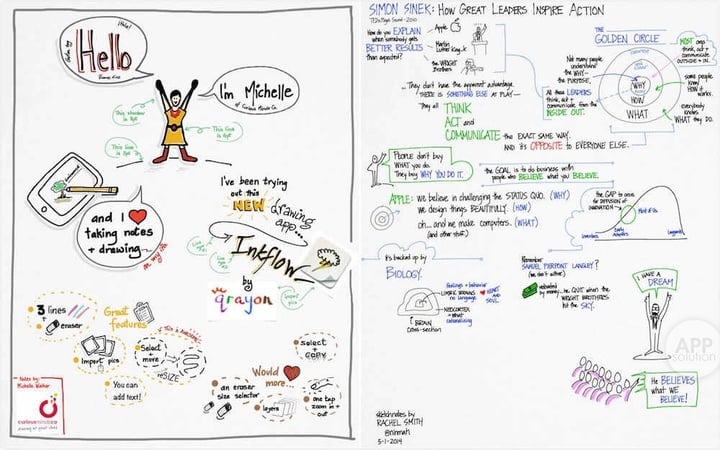 Hello!
Hello
I'm Michelle
of Curious Minds Co.
This shadow is 8pt
This line is 6pt
This line is 2pt
and I
taking notes
+ drawing...
on my
I've been trying
out this
NEW drawing
app...
Inkflow
by
qrayon
import pic
3 lines
+ eraser
Great
features
Import pics
Select
+
move
reSIZE
You can
add text!
select
+
COPY
Would
more...
an eraser
size selector
layers
one tap
zoom in +
out
Notes by:
Michelle Walker
curiousmindsco
SIMON SINEK: HOW GREAT LEADERS INSPIRE ACTION
TEDxPuget Sound - 2010
How do you EXPLAIN
when somebody gets
BETTER RESULTS
than expected?
Apple
Martin
Luther King Jr.
the WRIGHT
Brothers
They don't have the apparent advantage.
THERE IS SOMETHING ELSE AT PLAY
They all THINK
ACT and
COMMUNICATE the EXACT SAME WAY.
AND it's OPPOSITE to EVERYONE ELSE.
THE
GOLDEN CIRCLE
Not many people
understand
the WHY—
the PURPOSE.
All those LEADERS
think, act +
communicate from the
INSIDE OUT.
WHY
HOW
WHAT
MOST orgs
think, act +
communicate
OUTSIDE + IN.
some people
know HOW it
works.
everybody
knows
WHAT they DO.
PEOPLE don't buy
WHAT you DO.
They buy WHY YOU DO IT.
the GOAL is to do business with
people who BELIEVE what YOU BELIEVE.
APPLE: We believe in challenging the STATUS QUO. (WHY)
We design things BEAUTIFULLY. (HOW)
oh... and we make computers. (WHAT)
(and other stuff.)
the GAP to cross
for DIFFUSION of
INNOVATION
Innovators
Early
Adopters
Laggards
it's backed up by
BIOLOGY.
feelings + behavior
LIMBIC BRAIN
no language.
HEART
AND
SOUL.
NEOCORTEX
= what
rationalizing
BRAIN
cross-section
Remember
SAMUEL PIERPONT LANGLEY?
(We don't either.)
motivated
by money... he QUIT WHEN the
WRIGHT BROTHERS
hit the SKY.
I HAVE A
DREAM
He BELIEVES
what WE
BELIEVE!
sketchnotes by
RACHEL SMITH
@ninmah
5-1-2014
APP
solution